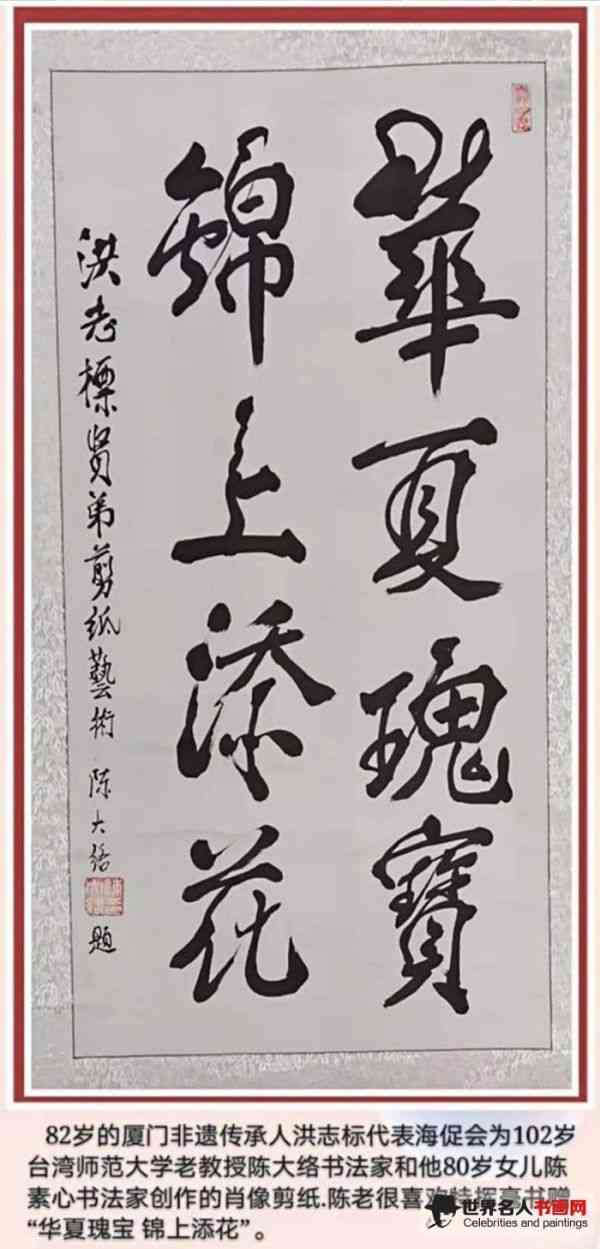 華夏瑰寶
錦上添花
洪志標贤弟剪紙藝術 陈大络 題
82岁的厦门非遗传承人洪志标代表海促会为102岁
台湾师范大学老教授陈大络书法家和他80岁女儿陈
素心书法家创作的肖像剪纸.陈老很喜欢特挥毫书赠
“华夏瑰宝 锦上添花”。
世界名人书画网
Celebrities and paintings